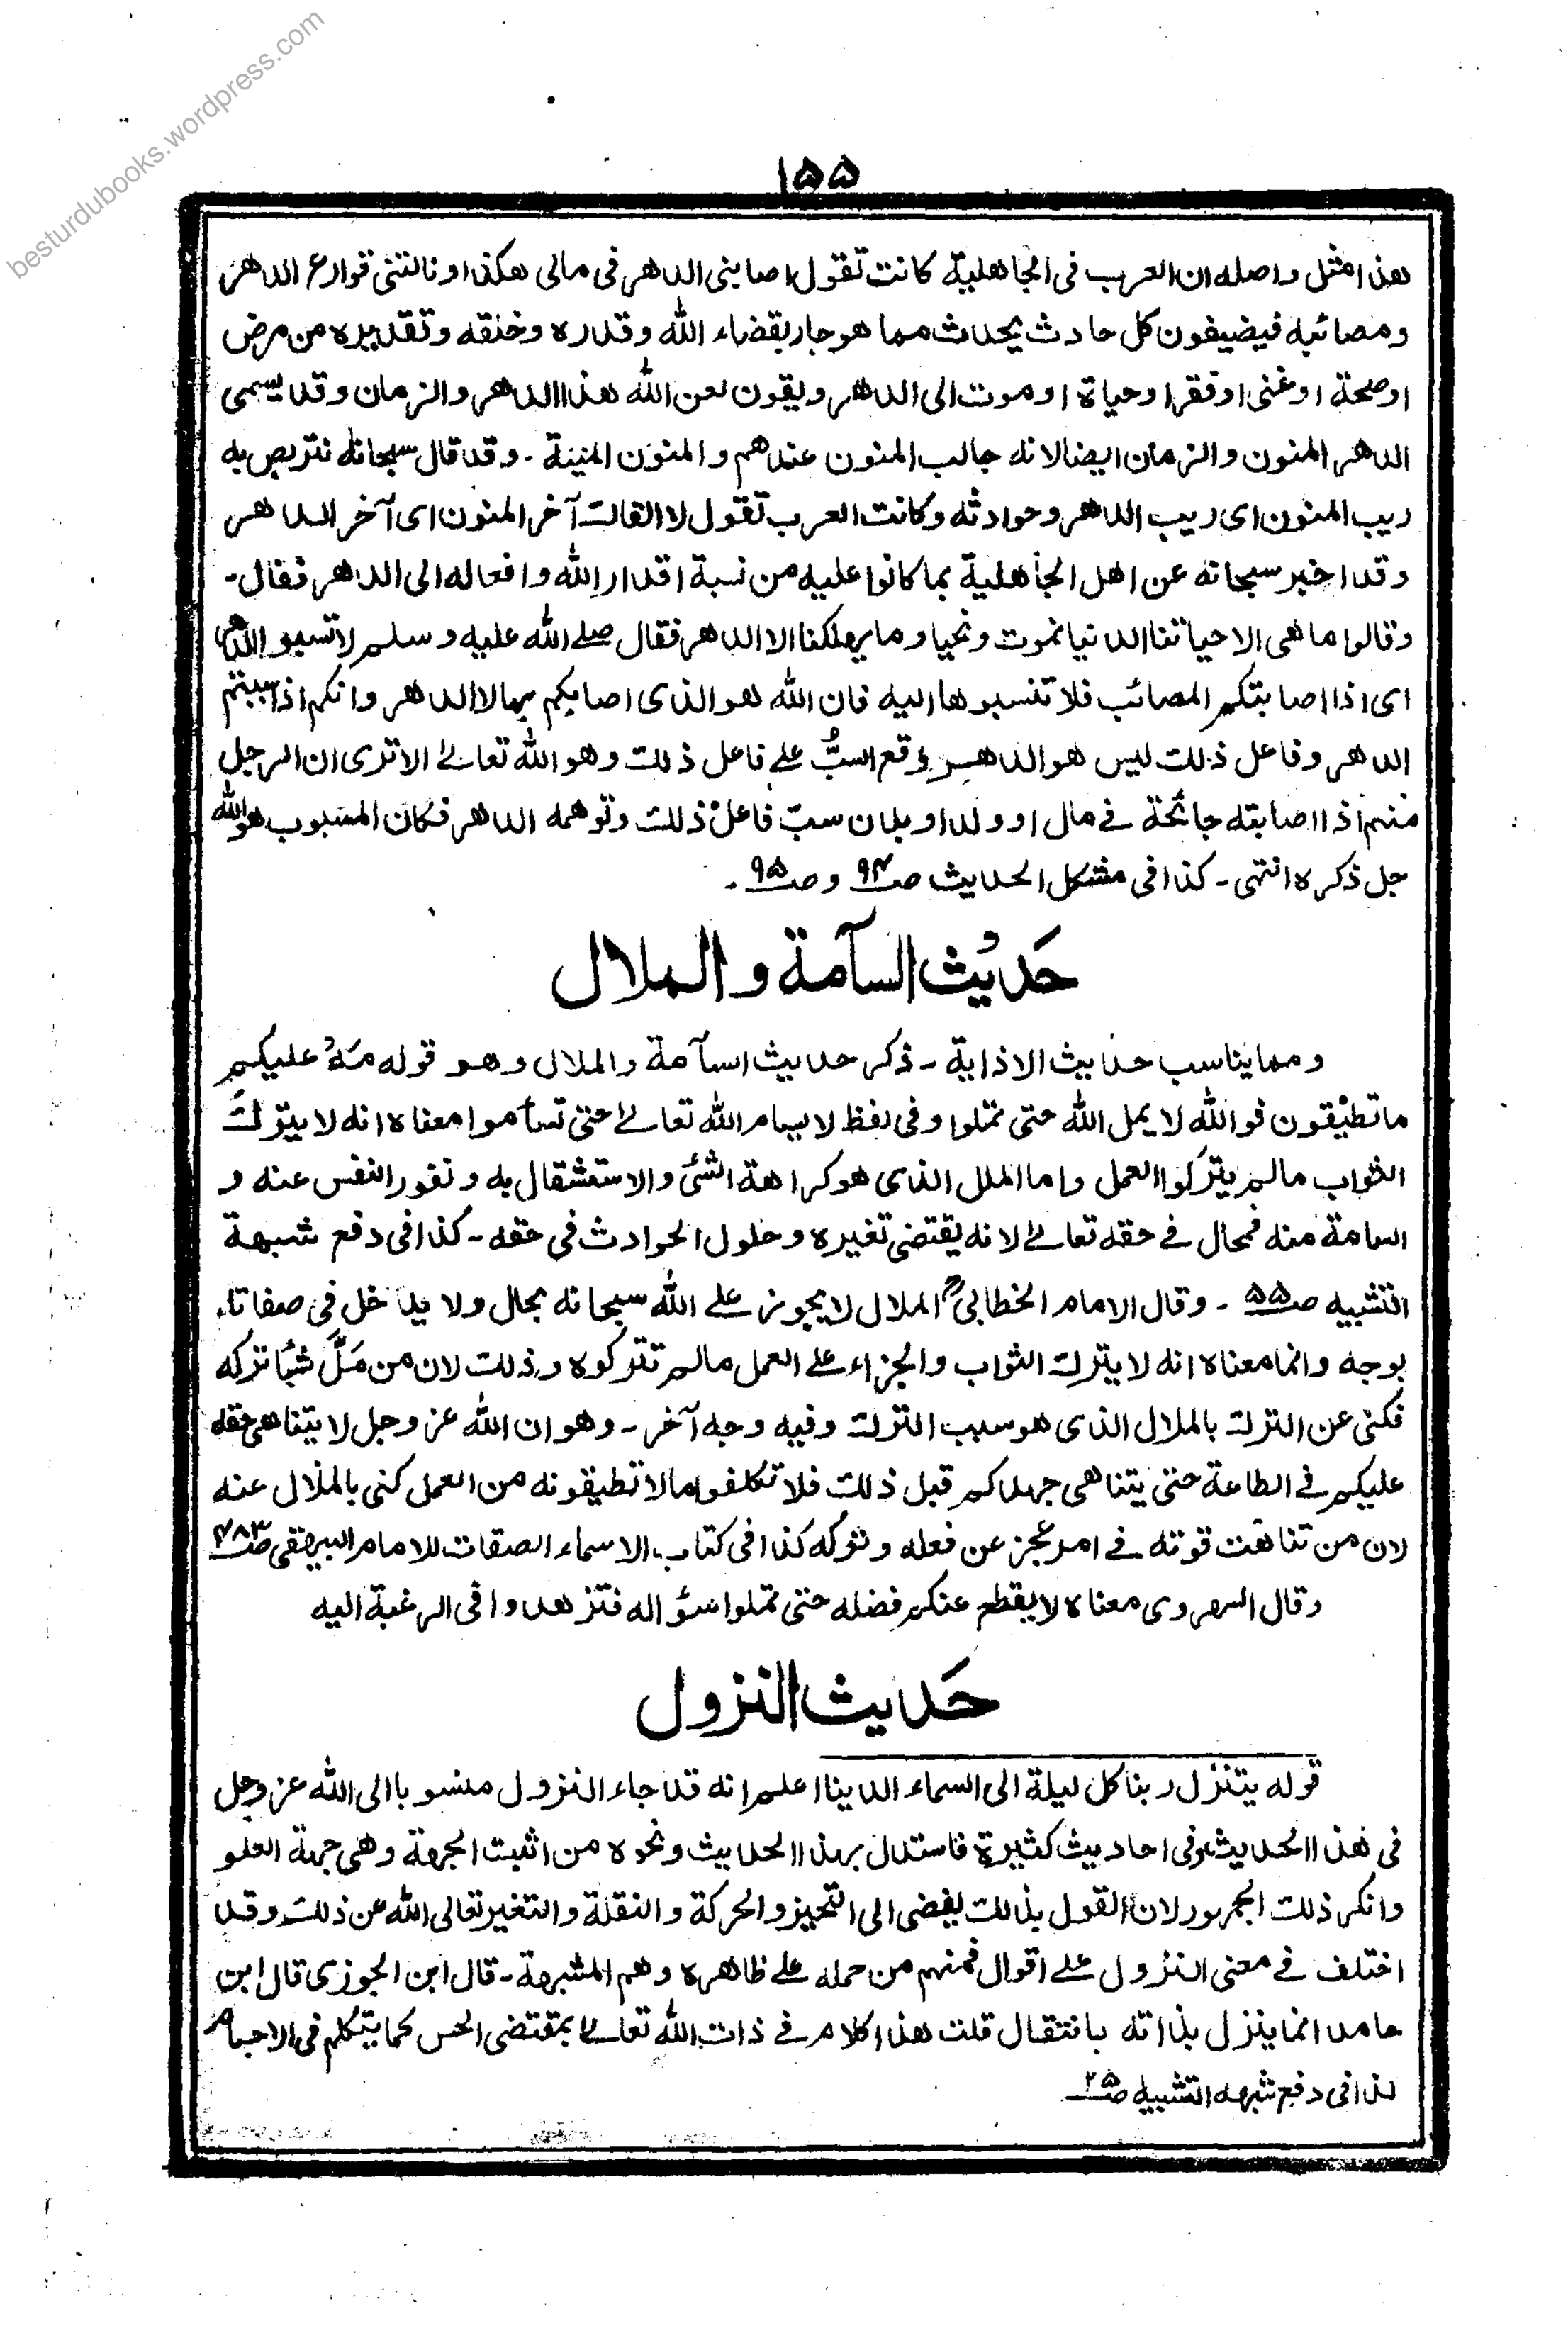 besturdubooks.wordpress.com
١۵۵
هذا مثل واصله ان العرب فى الجاهلية كانت تقول اصابنى الدهر فى مالى هكذا او نالتنى قوارع الدهر
ومصائبه فيضيفون كل حادث يحدث مما هو جار بقضاء الله وقدره وخلقه وتقديره من مرض
او صحة او غنى او فقر او حياة او موت الى الدهر ويقون لعن الله هذا الدهر والزمان وقد يسمى
الدهر المنون والزمان ايضا لانه جالب المنون عندهم والمنون المنية ۔ وقد قال سبحانه نتربص به
ريب المنون اى ريب الدهر وحوادثه وكانت العرب تقول لا القاك آخر المنون اى آخر الدهر
وقد اخبر سبحانه عن اهل الجاهلية بما كانوا عليه من نسبة اقدار الله وافعاله الى الدهر فقال۔
وقالوا ما هى الا حياتنا الدنيا نموت ونحيا وما يهلكنا الا الدهر فقال صلے الله عليه وسلم لا تسبوا الدهر
اى اذا اصابتكم المصائب فلا تنسبوها اليه فان الله هو الذى اصابكم بها لا الدهر وانكم اذا سببتم
الدهر وفاعل ذلك ليس هو الدهر وقع السبُّ علے فاعل ذلك وهو الله تعالےٰ الا ترى ان الرجل
منهم اذا اصابته جائحة فے مال او ولد او بدن سبّ فاعل ذلك وتوهمه الدهر فكان المسبوب هو الله
جل ذكره انتهى۔ كذا فى مشكل الحديث صـ٩۴ و صـ٩۵ ۔
حَديْث السآمة والملال
ومما يناسب حديث الاذاية ۔ ذكر حديث السآمة والملال وهو قوله مَهْ عليكم
ما تطيْقون فوالله لا يمل الله حتى تملوا وفى لفظ لا يسام الله تعالےٰ حتى تسأموا معناه انه لا يترك
الثواب مالم يتركوا العمل واما الملل الذى هو كراهة الشئ والاستثقال به ونفور النفس عنه و
السامة منه فمحال فے حقه تعالےٰ لانه يقتضى تغيره وحلول الحوادث فى حقه۔ كذا فى دفع شبهة
التشبيه صـ۵۵ ۔ وقال الامام الخطابىؒ الملال لا يجوز علے الله سبحانه بحال ولا يدخل فى صفاته
بوجه وانما معناه انه لا يترك الثواب والجزاء علے العمل مالم تتركوه وذلك لان من مَلَّ شيئا تركه
فكنى عن الترك بالملال الذى هو سبب الترك وفيه وجه آخر۔ وهو ان الله عز وجل لا يتناهى حقه
عليكم فے الطاعة حتى يتناهى جهدكم قبل ذلك فلا تكلفوا مالا تطيقونه من العمل كنى بالملال عنه
لان من تناهت قوته فے امر عجز عن فعله وتركه كذا فى كتاب الاسماء الصفات للامام البيهقى صـ۴٨٣
وقال الهروى معناه لا يقطع عنكم فضله حتى تملوا سؤاله فتزهدوا فى الرغبة اليه
حَديث النزول
قوله يتنزل ربنا كل ليلة الى السماء الدينا اعلم انه قد جاء النزول منسوبا الى الله عز وجل
فى هذا الحديث وفى احاديث كثيرة فاستدل بهذا الحديث ونحوه من اثبت الجهة وهى جهة العلو
وانكر ذلك الجمهور لان القول بذلك يفضى الى التحيز والحركة والنقلة والتغير تعالى الله عن ذلك وقد
اختلف فے معنى النزول علے اقوال فمنهم من حمله علے ظاهره وهم المشبهة۔ قال ابن الجوزى قال ابن
حامد انما ينزل بذاته بانتقال قلت هذا كلام فے ذات الله تعالےٰ بمقتضى الحس كما يتكلم فى الاجسام
كذا فى دفع شبهه التشبيه صـ٢۵